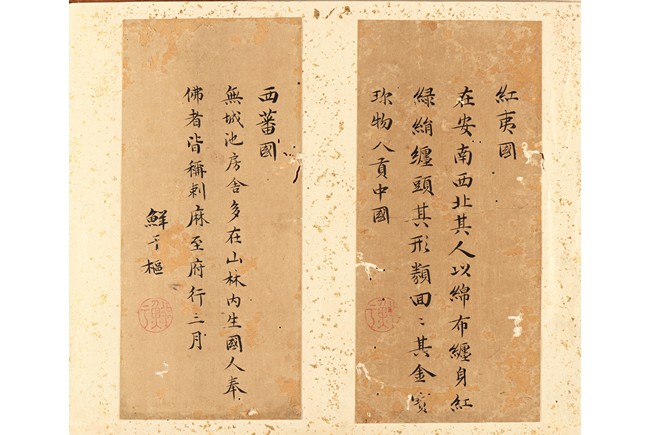 紅夷國
在安南西北其人以綿布纏身紅
綠絹纏頭其形類回〻其金寳
珎物入貢中國
西蕃國
無城池房舍多在山林内生國人奉
佛者皆稱剌麻至府行三月
鮮于樞